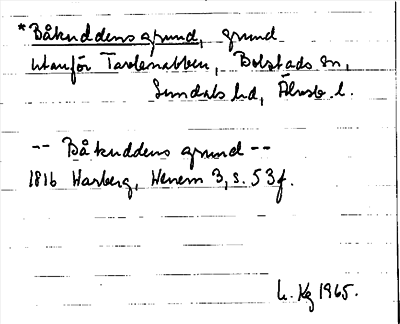 *Båkuddens grund, grund
utanför Tardenabben, Bolstads sn,
Sundals hd, Älvsb. l.
-- Båkuddens grund --
1816 Warberg, Wenern 3, s. 53f.
L. Kg 1965.